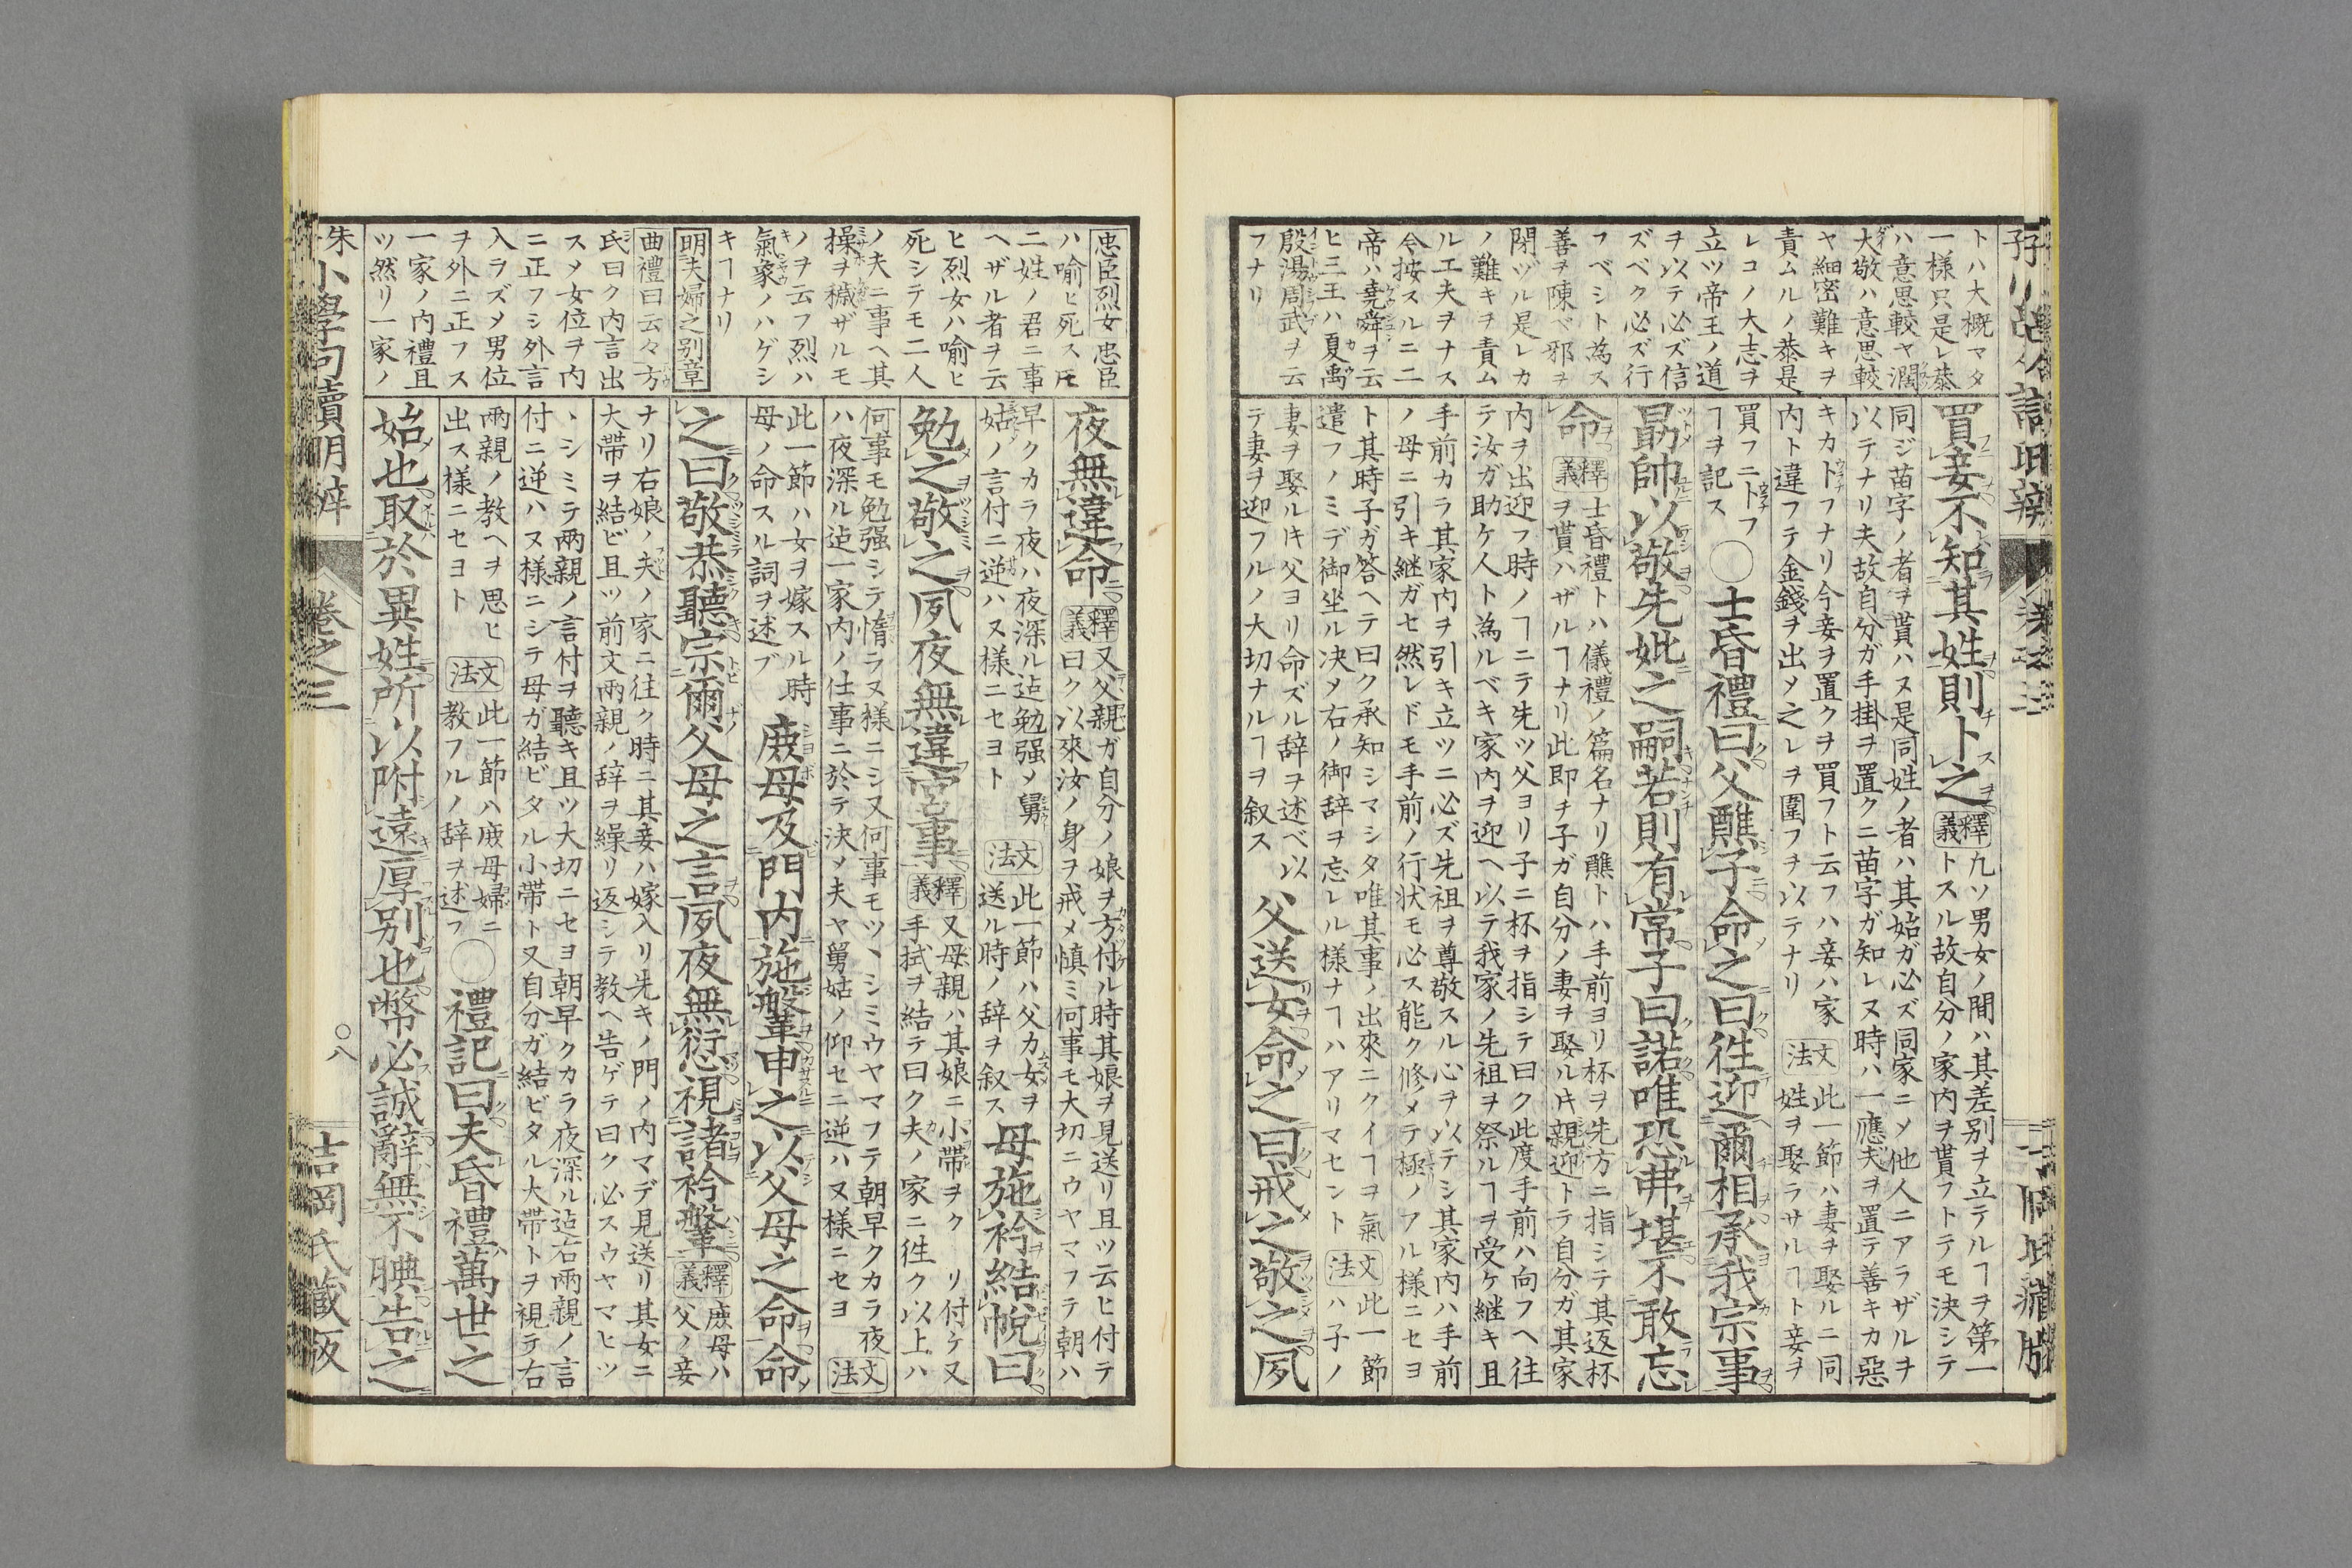 トハ大概マタ
一様只是レ恭
ハ意思較ヤ濶
大敬ハ意思較
ヤ細密難キヲ
責ムルノ恭是
レコノ大志ヲ
立ツ帝王ノ道
ヲ以テ必ズ信
ズベク必ズ行
フベシト為ス
善ヲ陳ベ邪ヲ
閉ヅル是レカ
ノ難キヲ責ム
ル工夫ヲナス
今按スルニ二
帝ハ堯舜ヲ云
ヒ三王ハ夏禹
殷湯周武ヲ云
フナリ
買妾不知其姓則卜之
釋義
凢ソ男女ノ間ハ其差別ヲ立テルヿヲ第一
トスル故自分ノ家内ヲ貰フトテモ決シテ
同ジ苗字ノ者ヲ貰ハヌ是同姓ノ者ハ其始ガ必ズ同家ニメ他人ニアラザルヲ
以テナリ夫故自分ガ手掛ヲ置クニ苗字ガ知レヌ時ハ一應夫ヲ置テ善キカ惡
キカトフナリ今妾ヲ置クヲ買フト云フハ妾ハ家
内ト違フテ金錢ヲ出メ之レヲ圍フヲ以テナリ
文法
此一節ハ妻ヲ娶ルニ同
姓ヲ娶ラサルヿト妾ヲ
買フニトフ
ヿヲ記ス
○士昏禮曰父醮子命之曰徃迎爾相承我宗事
勗帥以敬先妣之嗣若則有常子曰諾唯恐弗堪不敢忘
命
釋義
士昏禮トハ儀禮ノ篇名ナリ醮トハ手前ヨリ杯ヲ先方ニ指シテ其返杯
ヲ貰ハザルヿナリ此即チ子ガ自分ノ妻ヲ娶ル𪜈親迎トテ自分ガ其家
内ヲ出迎フ時ノヿニテ先ツ父ヨリ子ニ杯ヲ指シテ曰ク此度手前ハ向フヘ往
テ汝ガ助ケ人ト為ルベキ家内ヲ迎ヘ以テ我家ノ先祖ヲ祭ルヿヲ受ケ継キ且
手前カラ其家内ヲ引キ立ツニ必ズ先祖ヲ尊敬スル心ヲ以テシ其家内ハ手前
ノ母ニ引キ継ガセ然レドモ手前ノ行状モ必ス能ク修メテ極ノフル様ニセヨ
ト其時子ガ答ヘテ曰ク承知シマシタ唯其事ノ出來ニクイヿヲ氣
遣フノミデ御坐ル决メ右ノ御辞ヲ忘レル様ナヿハアリマセント
文法
此一節
ハ子ノ
妻ヲ娶ルキ父ヨリ命ズル辞ヲ述ベ以
テ妻ヲ迎フルノ大切ナルヿヲ叙ス
父送女命之曰戒之敬之夙
忠臣烈女忠臣
ハ喩ヒ死ス𪜈
二姓ノ君ニ事
ヘザル者ヲ云
ヒ烈女ハ喩ヒ
死シテモ二人
ノ夫ニ事ヘ其
操ヲ穢ザルモ
ノヲ云フ烈ハ
氣象ノハゲシ
キヿナリ
明夫婦之別章
曲禮曰云々方
氏曰ク内言出
スメ女位ヲ内
ニ正フシ外言
入ラズメ男位
ヲ外ニ正フス
一家ノ内禮且
ツ然リ一家ノ
夜無違命
釋義
又父親ガ自分ノ娘ヲ方付ル時其娘ヲ見送リ且ツ云ヒ付テ
曰ク以來汝ノ身ヲ戒メ慎ミ何事モ大切ニウヤマフテ朝ハ
早クカラ夜ハ夜深ル迠勉强メ舅
姑ノ言付ニ逆ハヌ様ニセヨト
文法
此一節ハ父カ女ヲ
送ル時ノ辞ヲ叙ス
母施衿結帨曰
勉之敬之夙夜無違宮事
釋義
又母親ハ其娘ニ小帶ヲクヽリ付ケ又
手拭ヲ結テ曰ク夫ノ家ニ徃ク以上ハ
何事モ勉强シテ惰ラヌ様ニシ又何事モツヽシミウヤマフテ朝早クカラ夜
ハ夜深ル迠一家内ノ仕事ニ於テ决メ夫ヤ舅姑ノ仰セニ逆ハヌ様ニセヨ
文法
此一節ハ女ヲ嫁スル時
母ノ命スル詞ヲ述ブ
庶母及門内施鞶申之以父母之命命
之曰敬恭聽宗爾父母之言夙夜無愆視諸衿鞶
釋義
庶母ハ
父ノ妾
ナリ右娘ノ夫ノ家ニ往ク時ニ其妾ハ嫁入リ先キノ門ノ内マデ見送リ其女ニ
大帶ヲ結ビ且ツ前文兩親ノ辞ヲ繰リ返シテ教ヘ告ゲテ曰ク必スウヤマヒツ
ヽシミテ兩親ノ言付ヲ聽キ且ツ大切ニセヨ朝早クカラ夜深ル迠右兩親ノ言
付ニ逆ハヌ様ニシテ母ガ結ビタル小帶ト又自分ガ結ビタル大帶トヲ視テ右
兩親ノ教ヘヲ思ヒ
出ス様ニセヨト
文法
此一節ハ庶母婦ニ
教フルノ辞ヲ述フ
○禮記曰夫昏禮萬世之
始也取於異姓所以附遠厚別也幣必誠辭無不腆告之
小學句讀明辨
卷之三
○八
吉岡氏藏版